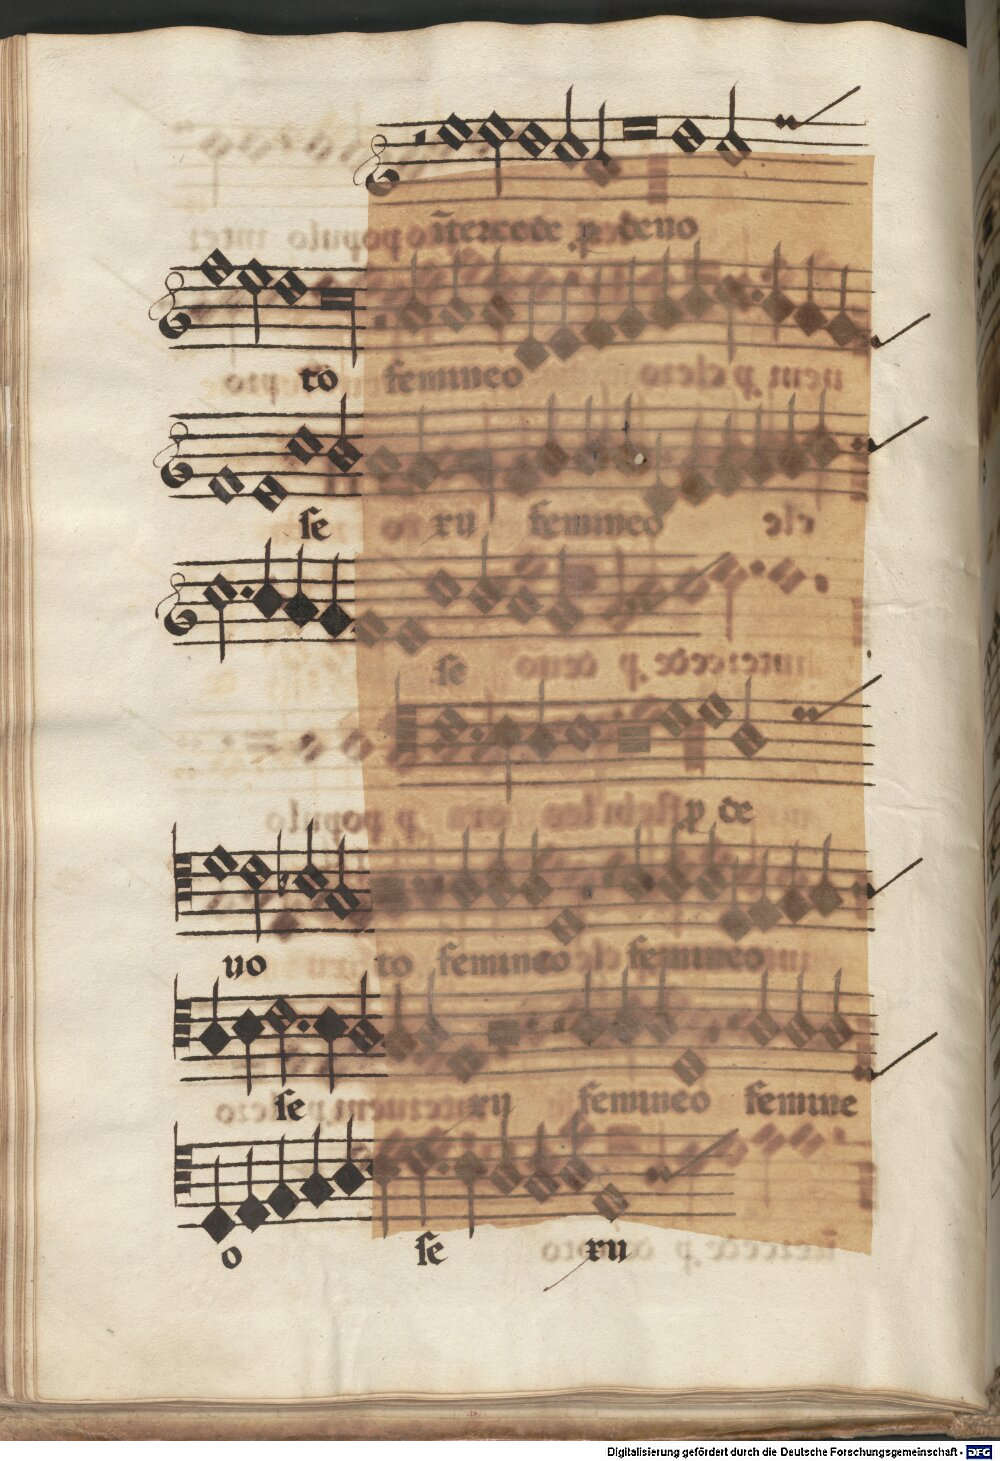 ĩtercede ꝓ deuo
to femineo
se xu femineo
se
ꝓ de
uo to femineo femineo
se xu femineo femine
o se xu
Digitalisierung gefördert durch die Deutsche Forschungsgemeinschaft - DFG